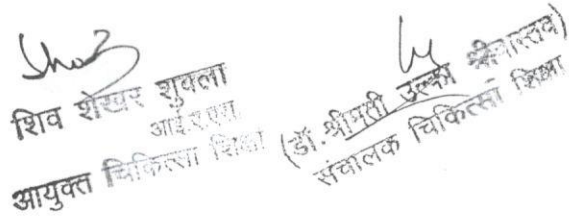 शिव शेखर शुक्ला
आई.ए.एस
आयुक्त चिकित्सा शिक्षा
(डॉ. श्रीमती उल्का श्रीवास्तव)
संचालक चिकित्सा शिक्षा